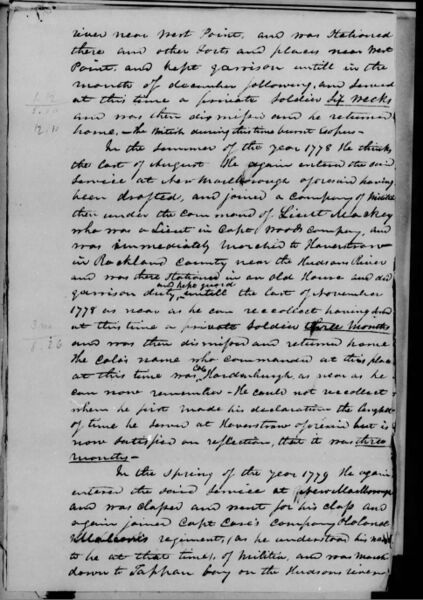 river near West Point, and was stationed
there and other forts and places near West
Point, and kept garrison untill in the
month of december following, and served
at this time a private soldier six weeks
and was then dismissed and he returned
home, the British during this time burnt Esopus
In the summer of the year 1778 He thinks
the last of August He again entered the said
service at New Marlborough aforesaid having
been drafted, and joined a company of militia
then under the command of Lieut Mackey
who was a Lieut in Capt Woods company, and
was immediately marched to Haverstraw
in Rockland County near the Hudsons River
and was there stationed in an old House and did
and kept guard
garrison duty, untill the last of November
1778 as near as he can recollect having served
at this time a private soldier three months
and was then dismissed and returned home
The Cols name who commanded at this place
at this time was Col Hardenburgh as near as he
can now remember - He could not recollect
when he first made his declaration the length
of time he served at Haverstraw aforesaid but is
now satisfied on reflection, that it was three
months -
In the spring of the year 1779 He again
entered the said service at New Marlborough
and was classed and went for his class and
again joined Capt Case's company Colonel
regiment, (as he understood his name
to be at that time) of militia, and was march
down to Tappan bay on the Hudsons river